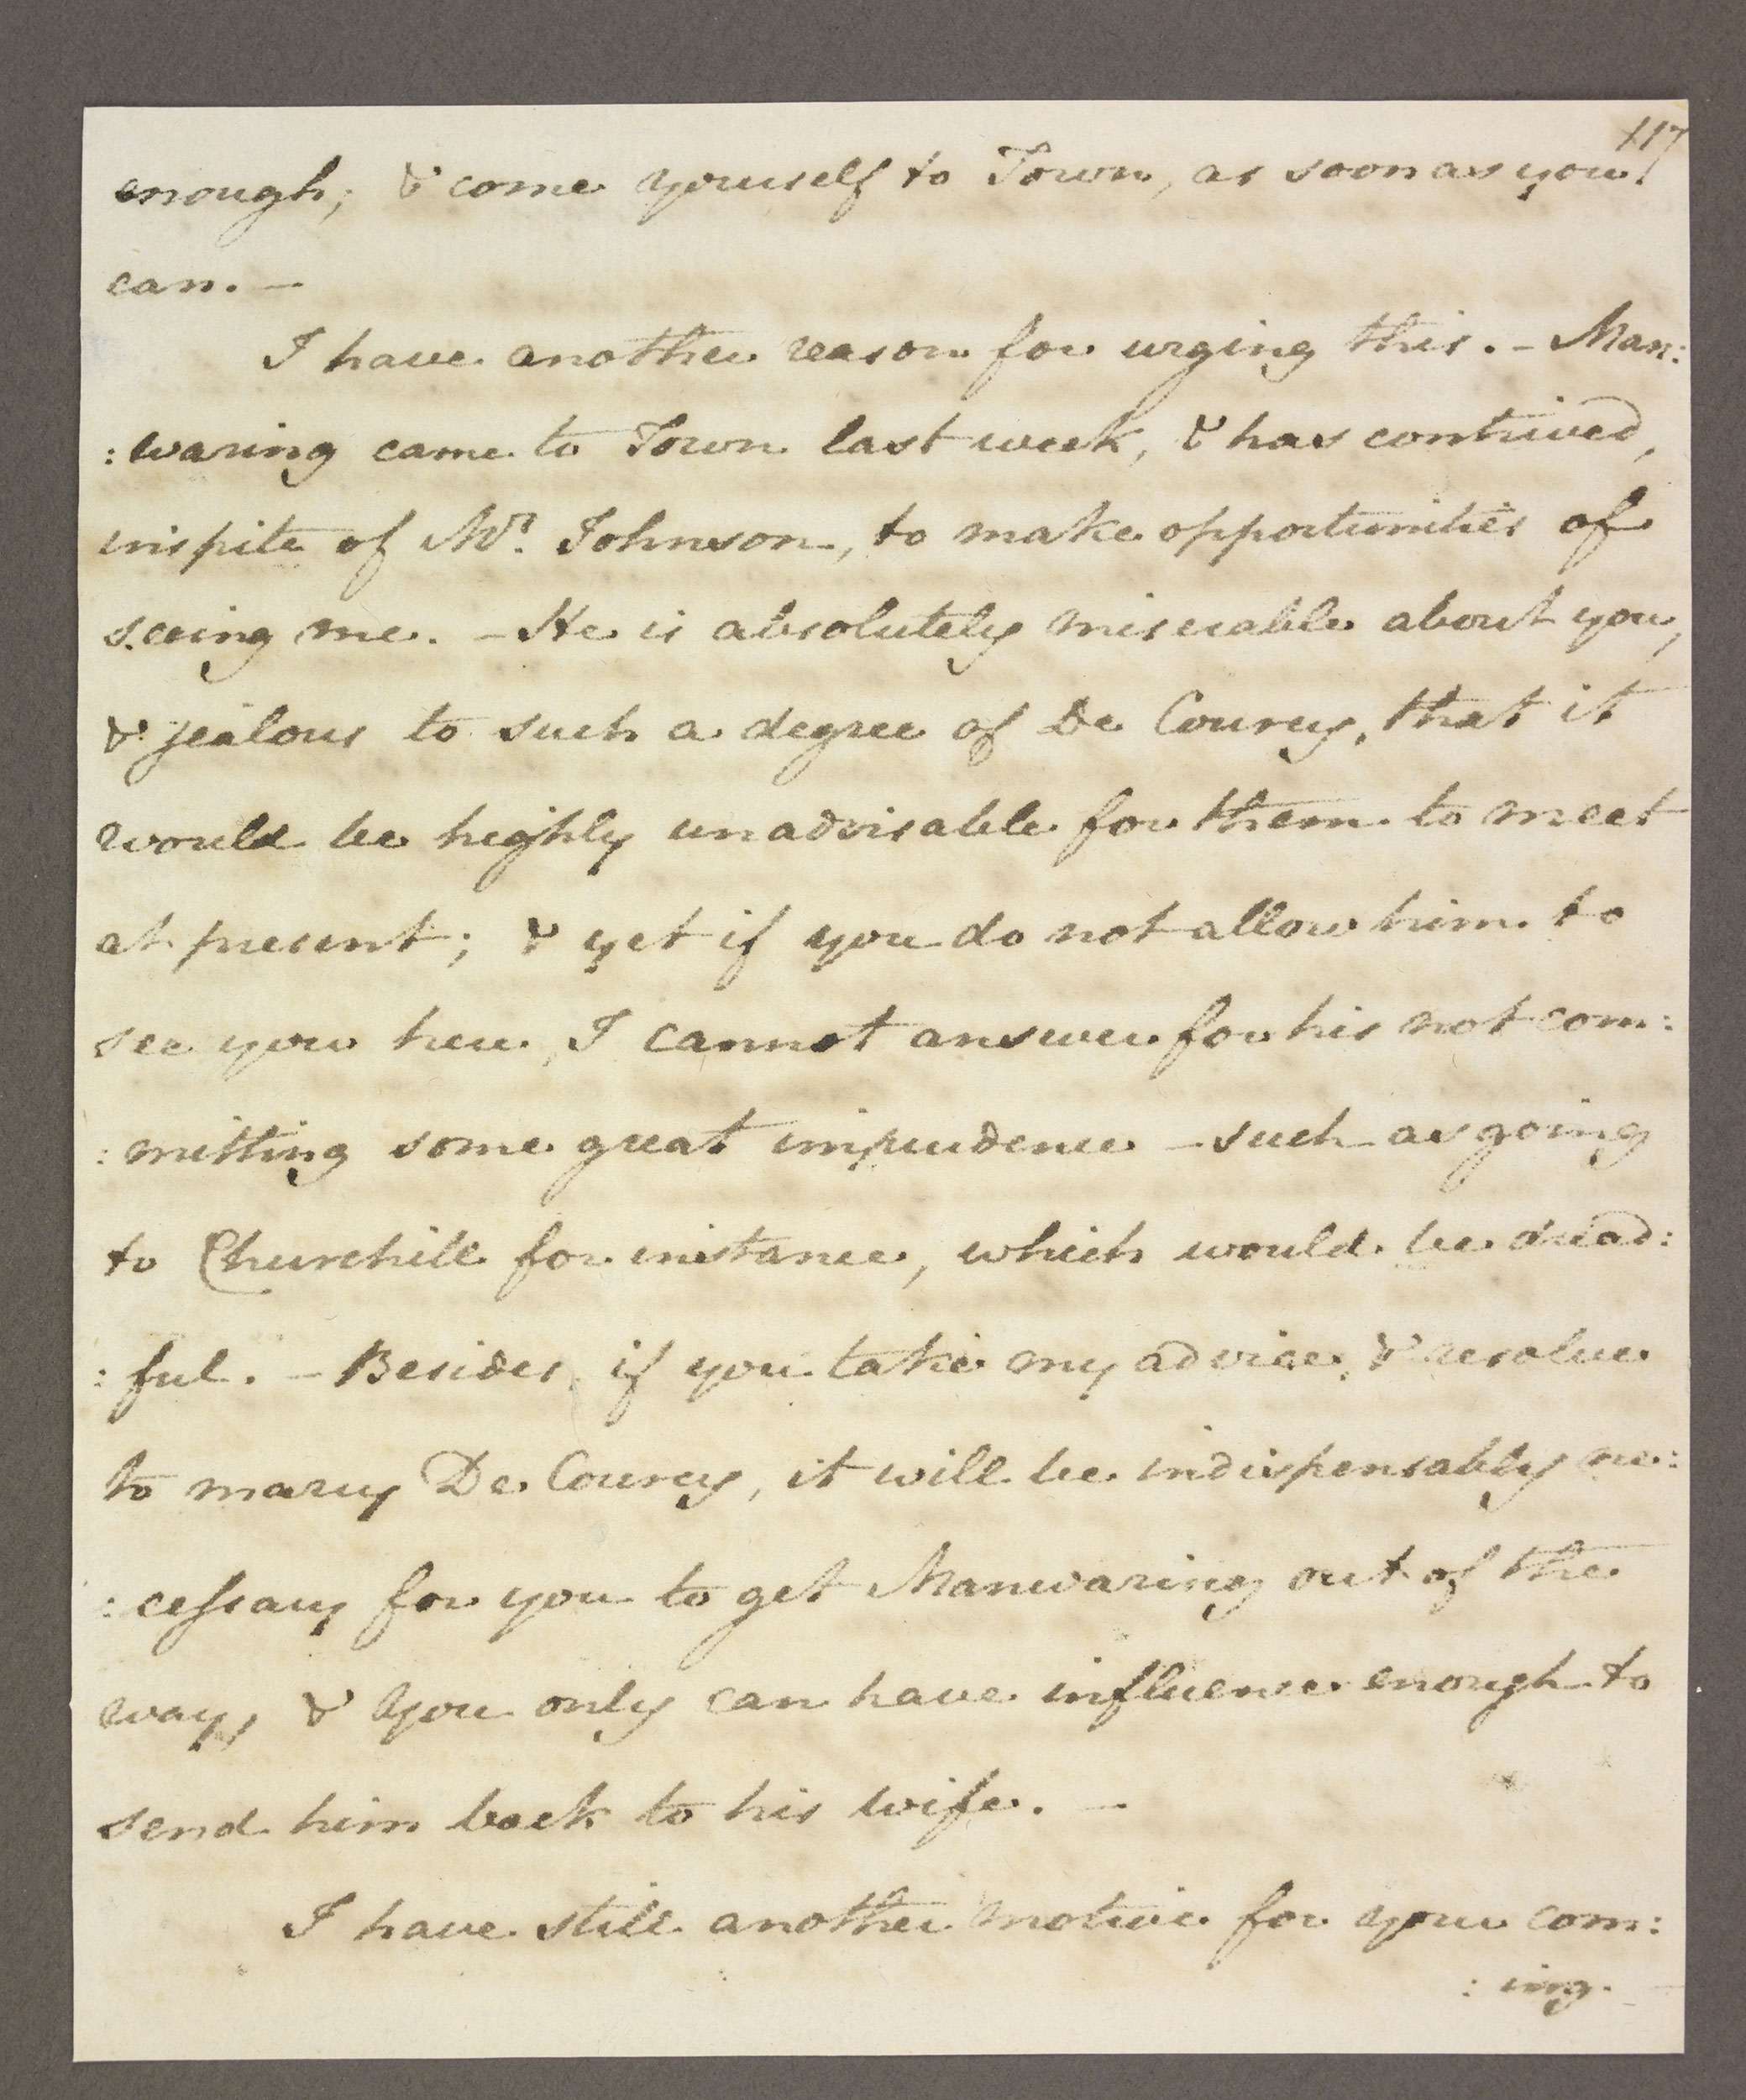 117
enough; & come yourself to Town, as soon as you
can. —
I have another reason for urging this. – Man:
:waring came to Town last week, & has contrived,
inspite of Mr. Johnson, to make opportunities of
seeing me. – He is absolutely miserable about you,
& jealous to such a degree of De Courcy, that it
would be highly unadvisable for them to meet
at present; & yet if you do not allow him to
see you here, I cannot answer for his not com:
:mitting some great imprudence – such as going
to Churchill for instance, which would be dread:
:ful. – Besides, if you take my advice, & resolve
to marry De Courcy, it will be indispensably ne:
:cessary for you to get Manwaring out of the
way, & you only can have influence enough to
send him back to his wife. —
I have still another motive for your com:
:ing.